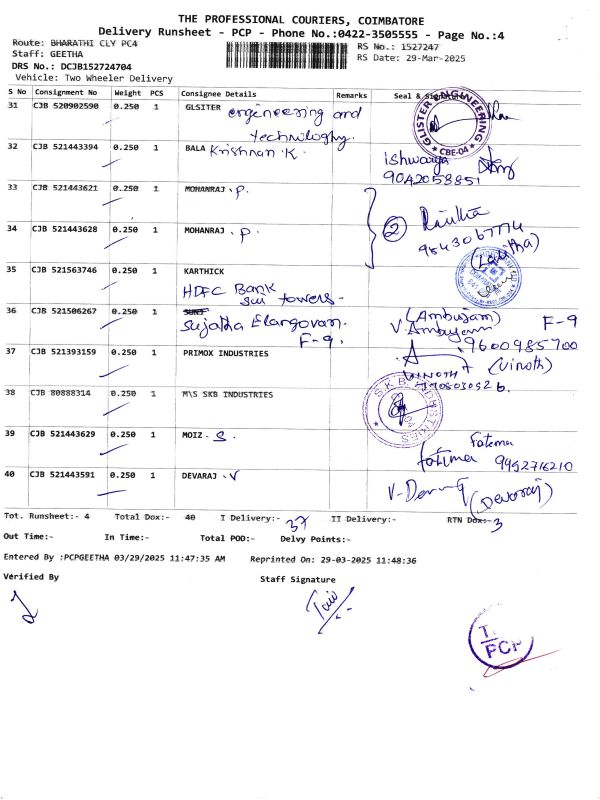 THE PROFESSIONAL COURIERS, COIMBATORE
Delivery Runsheet - PCP - Phone No.:0422-3505555 - Page No.:4
Route: BHARATHI CLY PC4
RS No.: 1527247
Staff: GEETHA
RS Date: 29-Mar-2025
DRS No.: DCJB152724704
Vehicle: Two Wheeler Delivery
S No Consignment No Weight PCS Consignee Details Remarks Seal & Signature
31 CJB 520902590 0.250 1 GLSITER engineering and
technologhy.
GLISTER ENGINEERING
* CBE-04 *
32 CJB 521443394 0.250 1 BALA Krishnan K.
ishwarya
9042058851
33 CJB 521443621 0.250 1 MOHANRAJ .P.
34 CJB 521443628 0.250 1 MOHANRAJ .P.
2
9843067774
(Lalitha)
35 CJB 521563746 0.250 1 KARTHICK
HDFC Bank
sai towers-
36 CJB 521506267 0.250 1
Sujatha Elangovan.
F-9.
(Ambujam) F-9
V. Ambujam
9600985700
37 CJB 521393159 0.250 1 PRIMOX INDUSTRIES
(Vinoth)
VINOTH
38 CJB 80888314 0.250 1 M\S SKB INDUSTRIES
S.K.B. INDUSTRIES
39 CJB 521443629 0.250 1 MOIZ. S.
Fatema
fatima 9952716210
40 CJB 521443591 0.250 1 DEVARAJ .V
(Devaraj)
Tot. Runsheet:- 4 Total Dox:- 40 I Delivery:- 37 II Delivery:- RTN Dox:- 3
Out Time:- In Time:- Total POD:- Delvy Points:-
Entered By :PCPGEETHA 03/29/2025 11:47:35 AM Reprinted On: 29-03-2025 11:48:36
Verified By Staff Signature
PCP